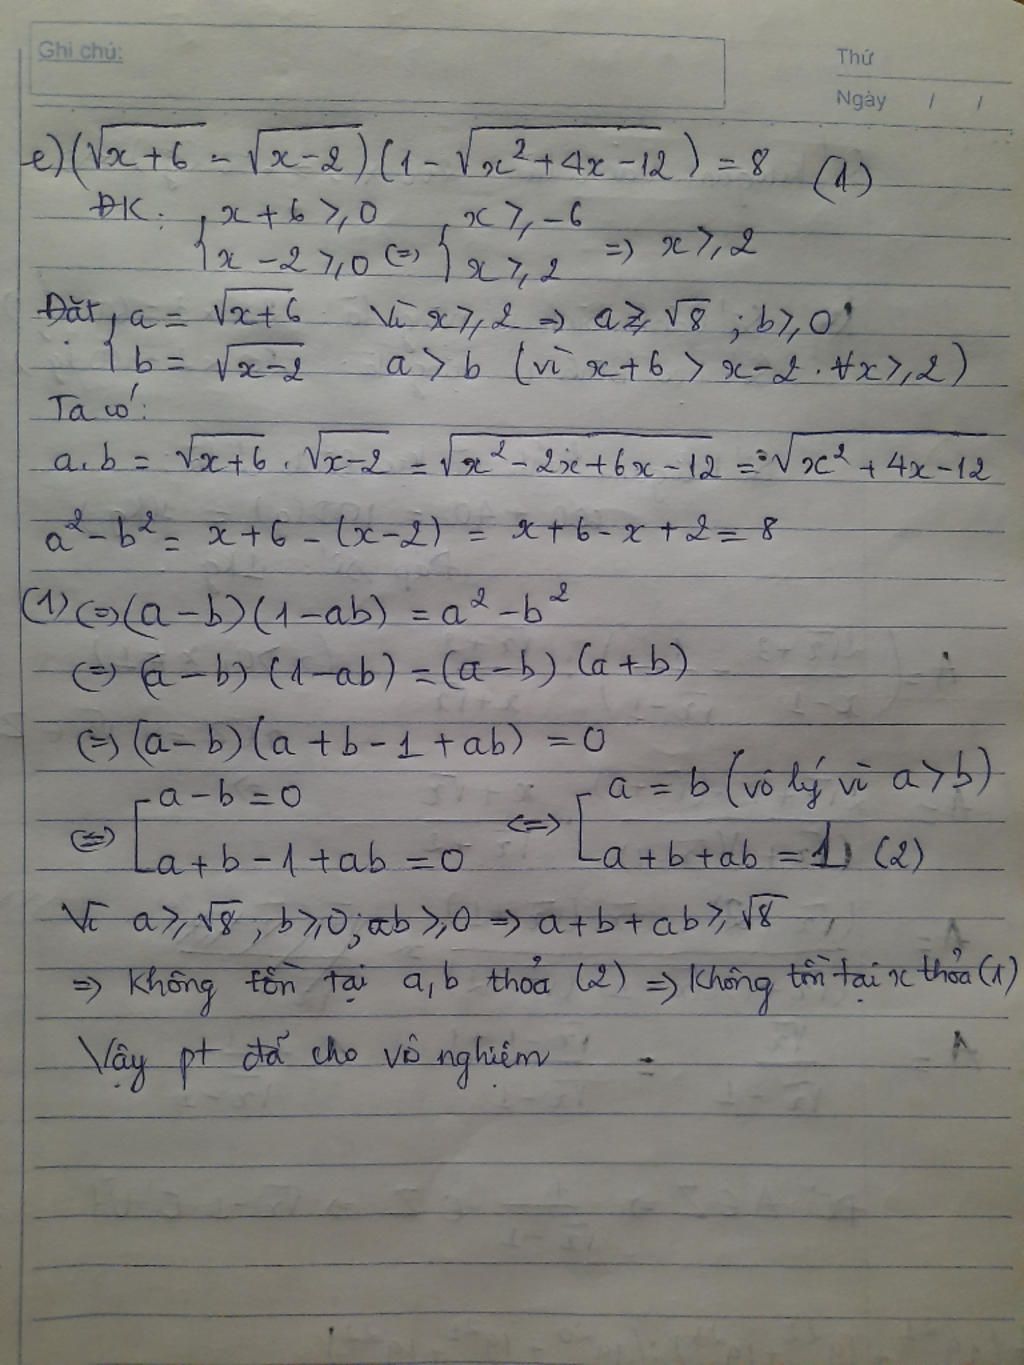 Ghi chú:
Thứ
Ngày / /
e) (√(x+6) - √(x-2)) (1 - √(x² + 4x - 12)) = 8 (1)
ĐK: { x + 6 ⩾ 0 { x ⩾ -6
{ x - 2 ⩾ 0 <=> { x ⩾ 2 => x ⩾ 2
Đặt { a = √(x+6) Vì x ⩾ 2 => a ⩾ √8 ; b ⩾ 0
{ b = √(x-2) a > b (vì x+6 > x-2 ∀x ⩾ 2)
Ta có:
a.b = √(x+6) . √(x-2) = √(x² - 2x + 6x - 12) = √(x² + 4x - 12)
a² - b² = x + 6 - (x-2) = x + 6 - x + 2 = 8
(1) <=> (a - b) (1 - ab) = a² - b²
<=> (a - b) (1 - ab) = (a - b) (a + b)
<=> (a - b) (a + b - 1 + ab) = 0
<=> [ a - b = 0 <=> [ a = b (vô lý vì a > b)
[ a + b - 1 + ab = 0 [ a + b + ab = 1 (2)
Vì a ⩾ √8 ; b ⩾ 0 ; ab ⩾ 0 => a + b + ab ⩾ √8
=> Không tồn tại a, b thỏa (2) => Không tồn tại x thỏa (1)
Vậy pt đã cho vô nghiệm